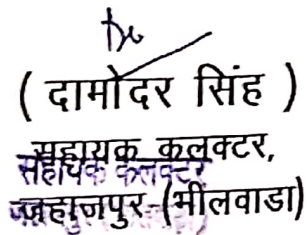 ( दामोदर सिंह )
सहायक कलक्टर,
सहायक कलक्टर
जहाजपुर (भीलवाडा)